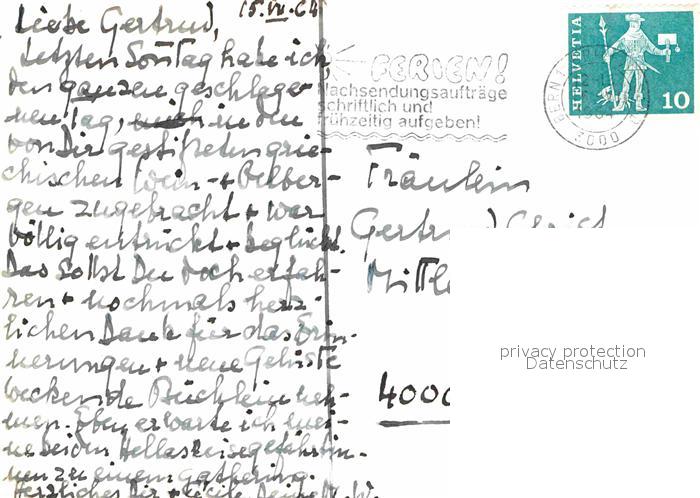 15.VII.64
Liebe Gertrud,
Letzten Sonntag habe ich
den ganzen geschlage-
nen Tag, in den
von Dir gestifteten grie-
chischen Wein- + Oelber-
gen zugebracht + war
völlig entrückt + beglückt.
Das sollst Du doch erfah-
ren + nochmals herz-
lichen Dank für das Erin-
nerungen + neue Gelüste
weckende Büchlein neh-
men. Eben erwarte ich mei-
ne beiden Hellasreisegefährtin-
nen zu einem gathering.
Herzliches Dir + Cécile, Deine M. W.
FERIEN!
Nachsendungsaufträge
schriftlich und
frühzeitig aufgeben!
BERN 1
3000
HELVETIA
10
Fräulein
Gertrud
4000
privacy protection
Datenschutz